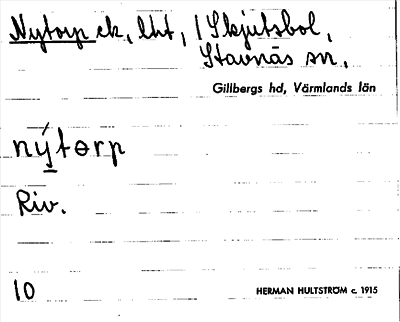 Nytorp ek, lht, / Skjutsbol,
Stavnäs sn,
Gillbergs hd, Värmlands län
nýtɵrp
Riv.
10
HERMAN HULTSTRÖM c. 1915